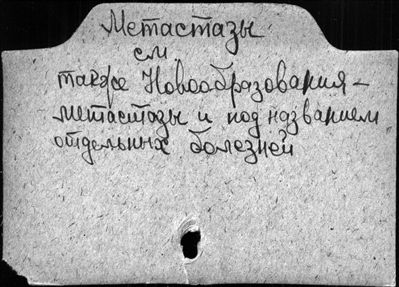 Метастазы
см.
также Новообразования –
метастазы и под названием
отдельных болезней